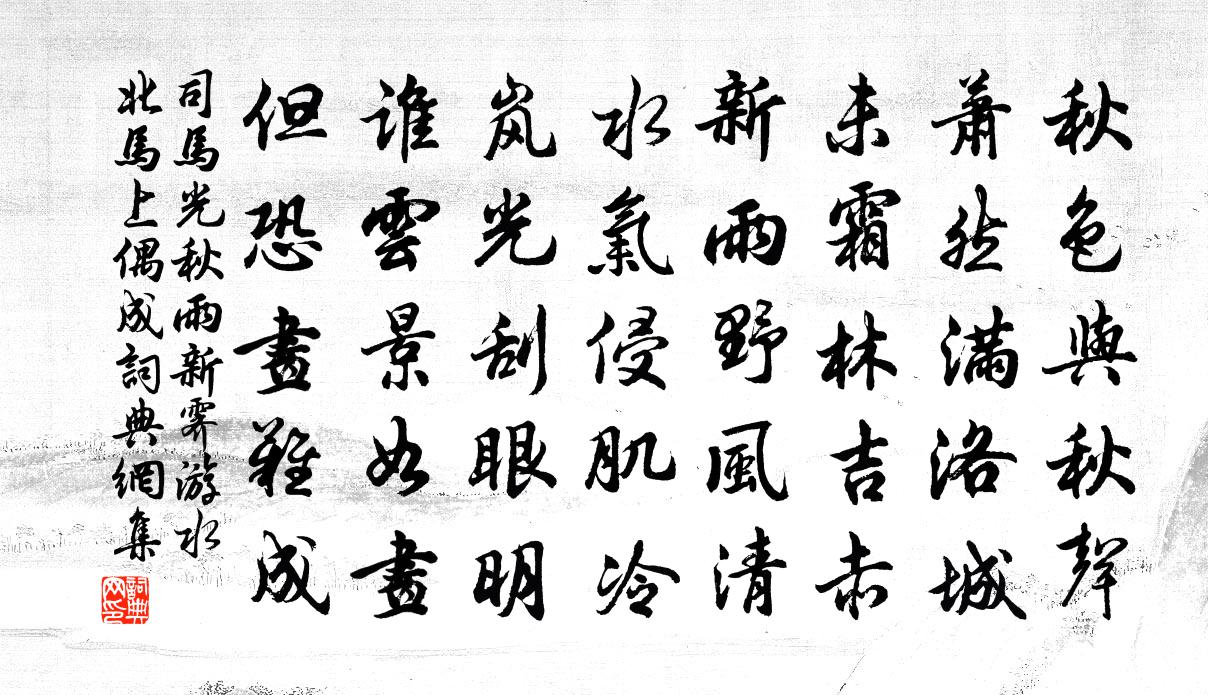 秋色與秋聲
蕭然滿洛城
未霜林吉赤
新雨野風清
水氣侵肌冷
岚光刮眼明
誰雲景如畫
但恐畫難成
司馬光秋雨新霽游水
北馬上偶成詞典網集
詞典
网印